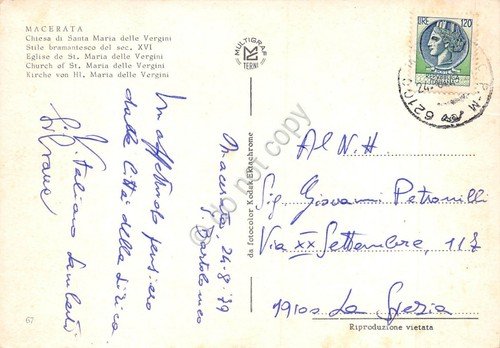 MACERATA
Chiesa di Santa Maria delle Vergini
Stile bramantesco del sec. XVI
Eglise de St. Maria delle Vergini
Church of St. Maria delle Vergini
Kirche von Hl. Maria delle Vergini
MULTIGRAF
TERNI
LIRE 120
62100
Macerata 24-8-79
S. Bartolomeo
Un affettuoso pensiero
dalla Città della lirica.
Italiano
67
da fotocolor Kodak Ektachrome
do not copy
Al N.H.
Sig. Giovanni Petronilli
Via XX Settembre, 117
19100 La Spezia
Riproduzione vietata